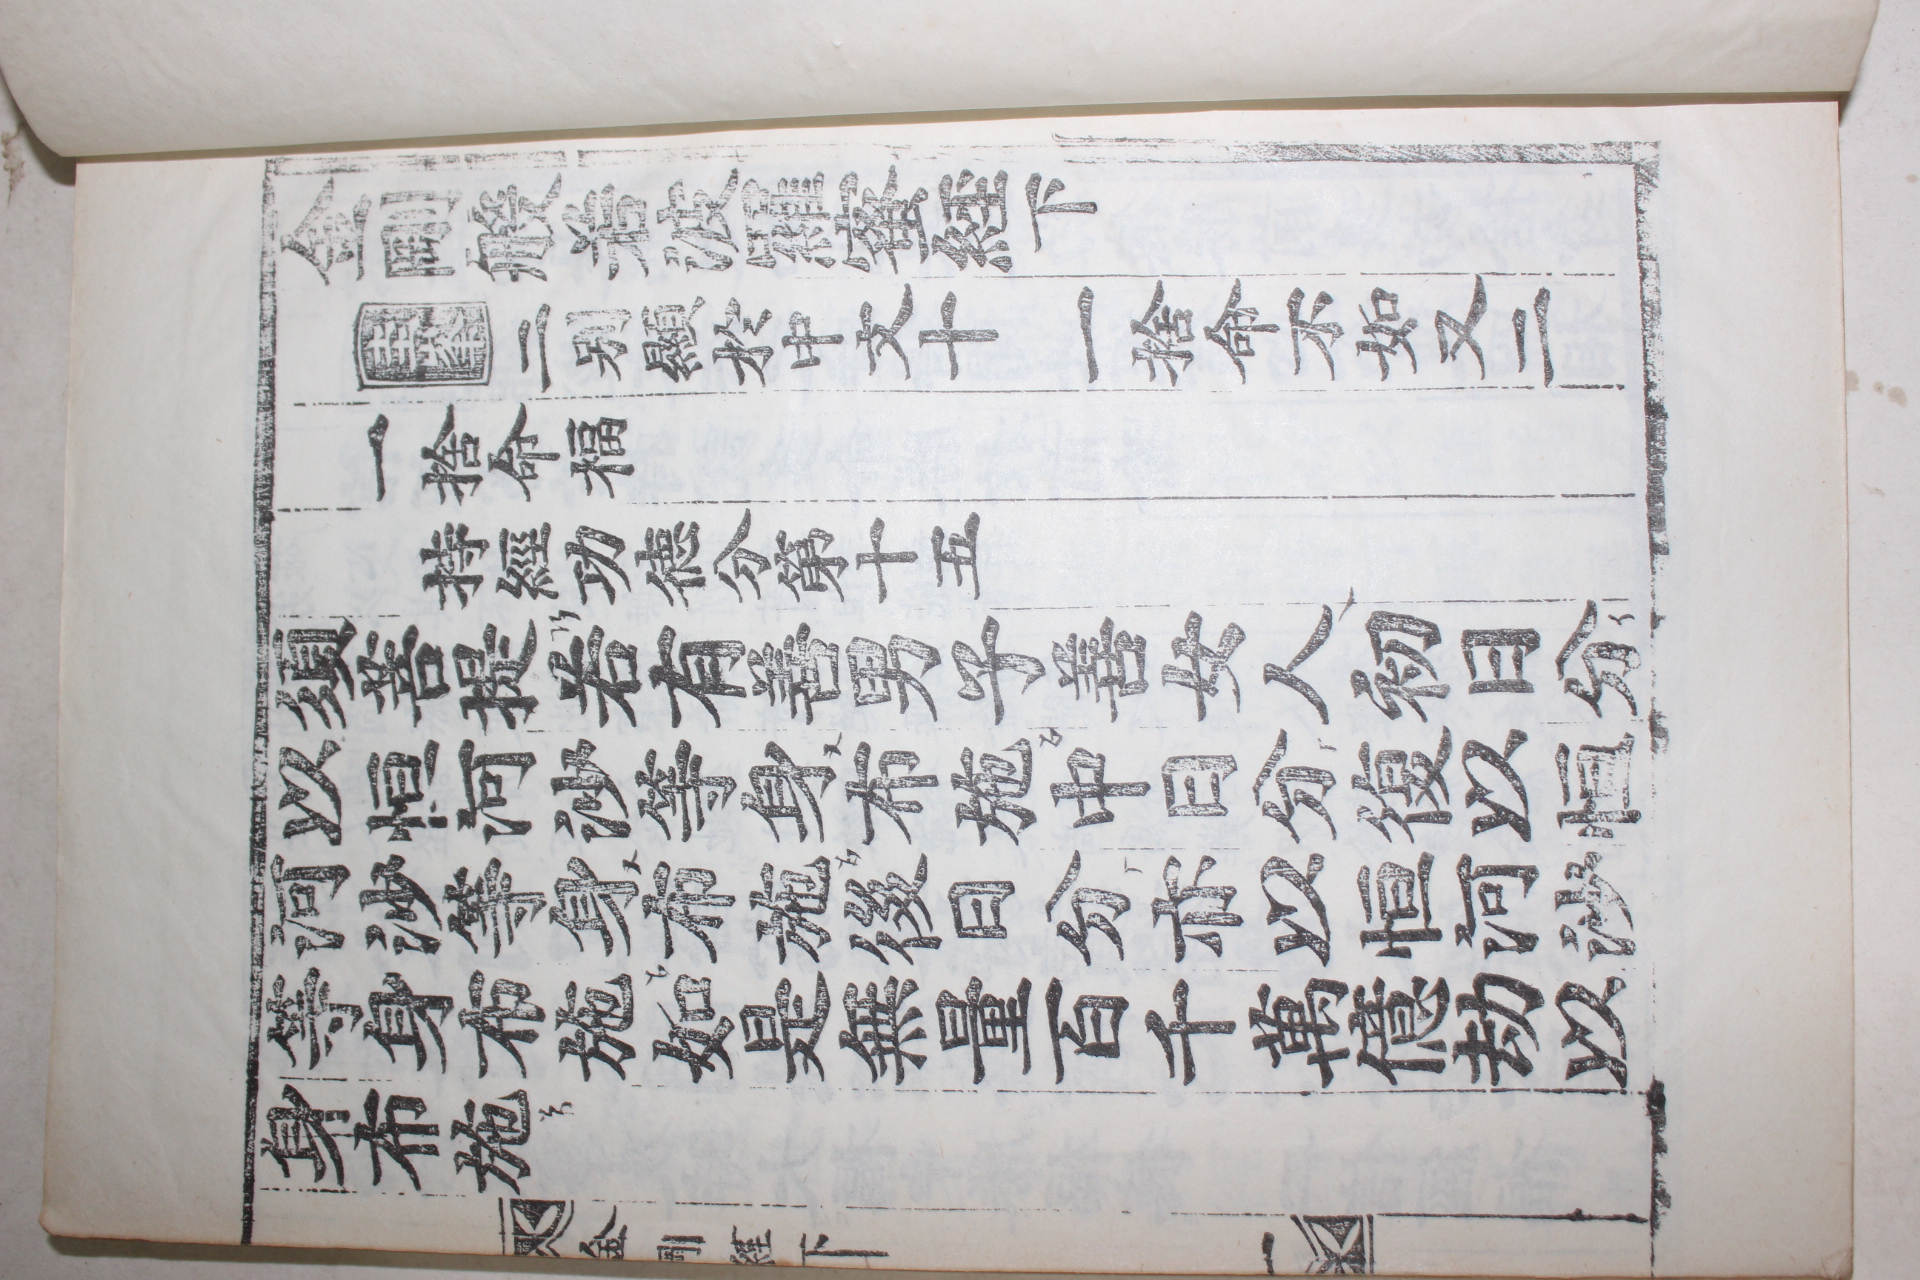 金剛般若波羅蜜經下
二別顯於中文十 一捨命不如又二
一捨命福
持經功德分第十五
須菩提若有善男子善女人初日分
以恒河沙等身布施中日分復以恒
河沙等身布施後日分亦以恒河沙
等身布施如是無量百千萬億劫以
身布施
金剛經下 一